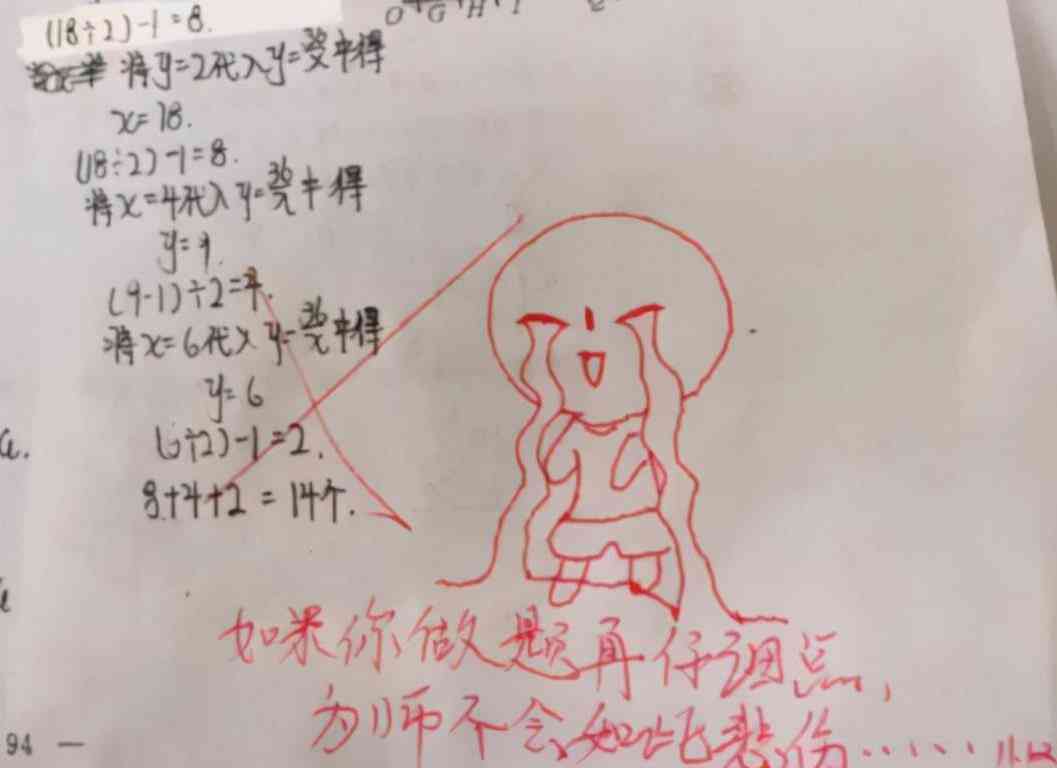 (18÷2)-1=8.
O G H I
将y=2代入y=36/x中得
x=18.
(18÷2)-1=8.
将x=4代入y=36/x中得
y=9.
(9-1)÷2=4.
将x=6代入y=36/x中得
y=6
(6÷2)-1=2.
a.
8+4+2=14个.
如果你做题再仔细点,
为师不会如此悲伤……
94 —